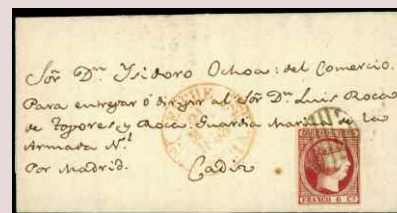 Sōr Dⁿ Isidoro Ochoa: del Comercio.
Para entregar ó dirijir al Sōr Dⁿ Luis Roca
de Togores y Roca: Guardia Marina de la
Armada Nˡ
Por Madrid. Cadiz
FRANCO 6 Cˢ